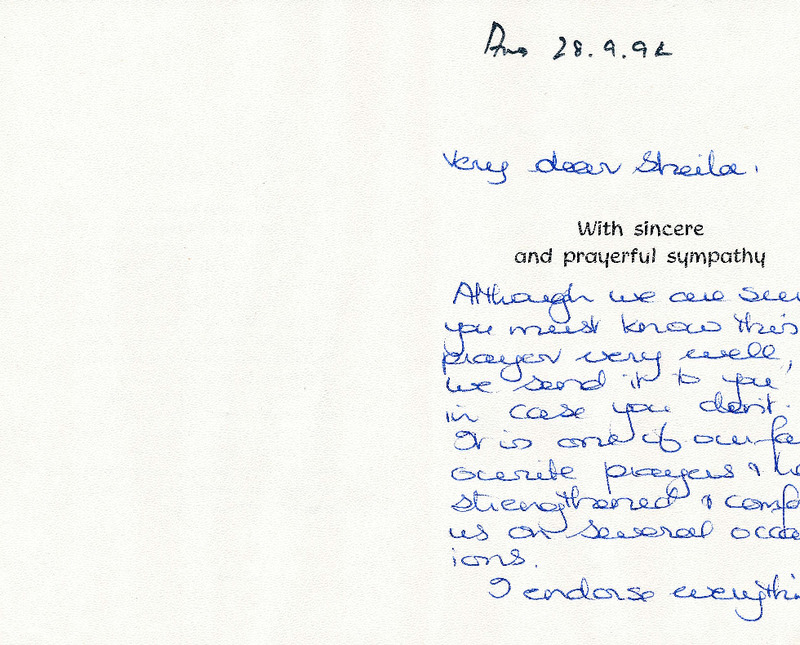 Ans 28.9.92
Very dear Sheila.
With sincere
and prayerful sympathy
Although we are
you must know this
prayer very well,
we send it to you
in case you don't.
It is one of our fa
ourite prayers &
strengthened & comfo
us on several occas
ions.
I endorse everythi